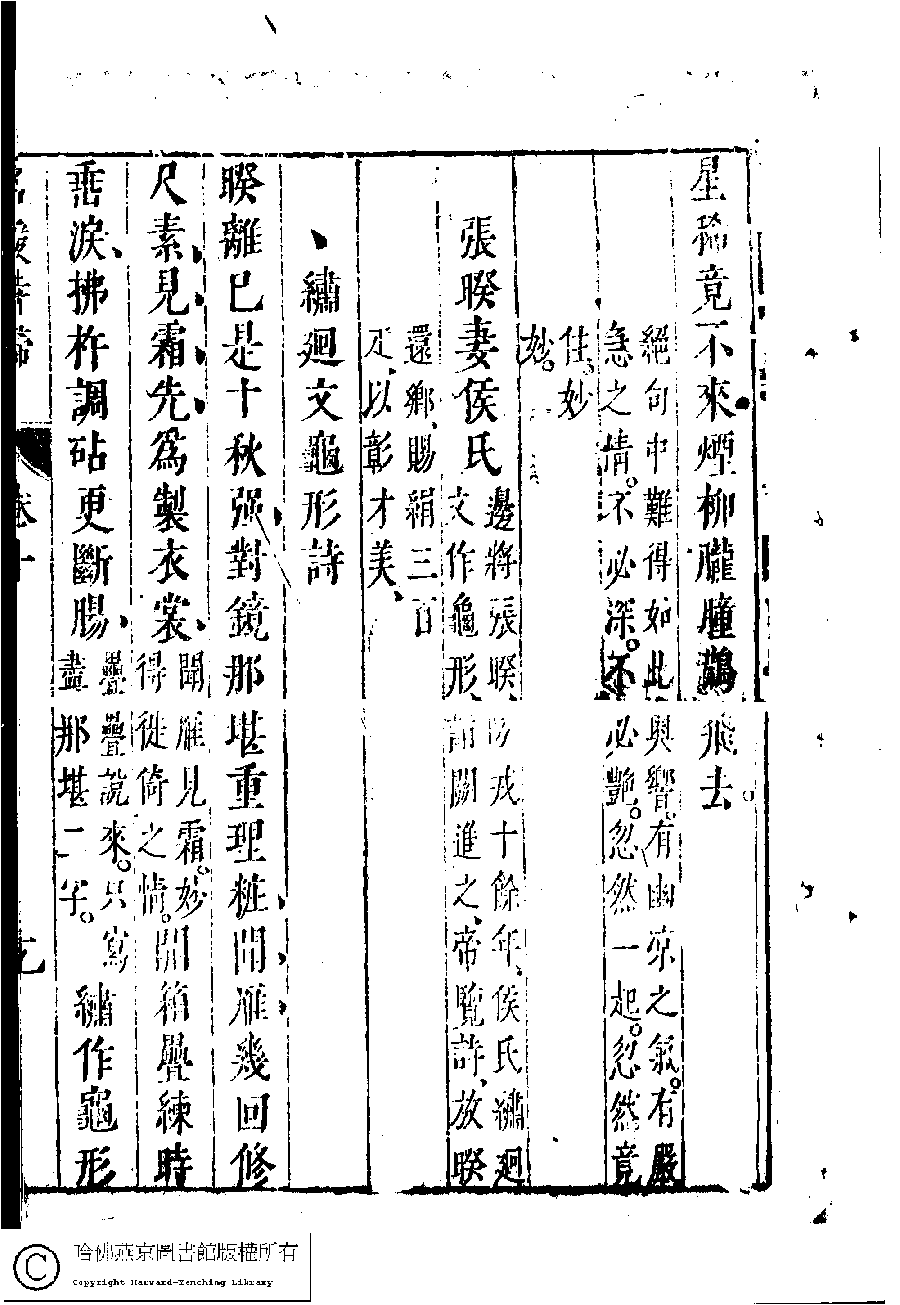 星稀竟不來煙柳朧朣鵲飛去。
絕句中難得如此與響有幽凉之氣。有嚴
急之情。不必深。不必艷。忽然一起。忽然竟
住、妙
妙。
張睽妻侯氏
邊將張睽、防戎十餘年、侯氏繡廻
文作龜形、詣闕進之、帝覽詩、放睽
還鄉、賜絹三百
疋、以彰才美、
繡廻文龜形詩
睽離巳是十秋强、對鏡那堪重理粧、聞雁、幾回修
尺素、見霜、先爲製衣裳、
聞雁見霜。妙
得徙倚之情。
開箱疊練時
垂淚、拂杵調砧更斷腸、
疊疊說來。只寫
盡那堪二字。
繡作龜形
卷十
哈佛燕京圖書館版權所有
Copyright Harvard-Yenching Library